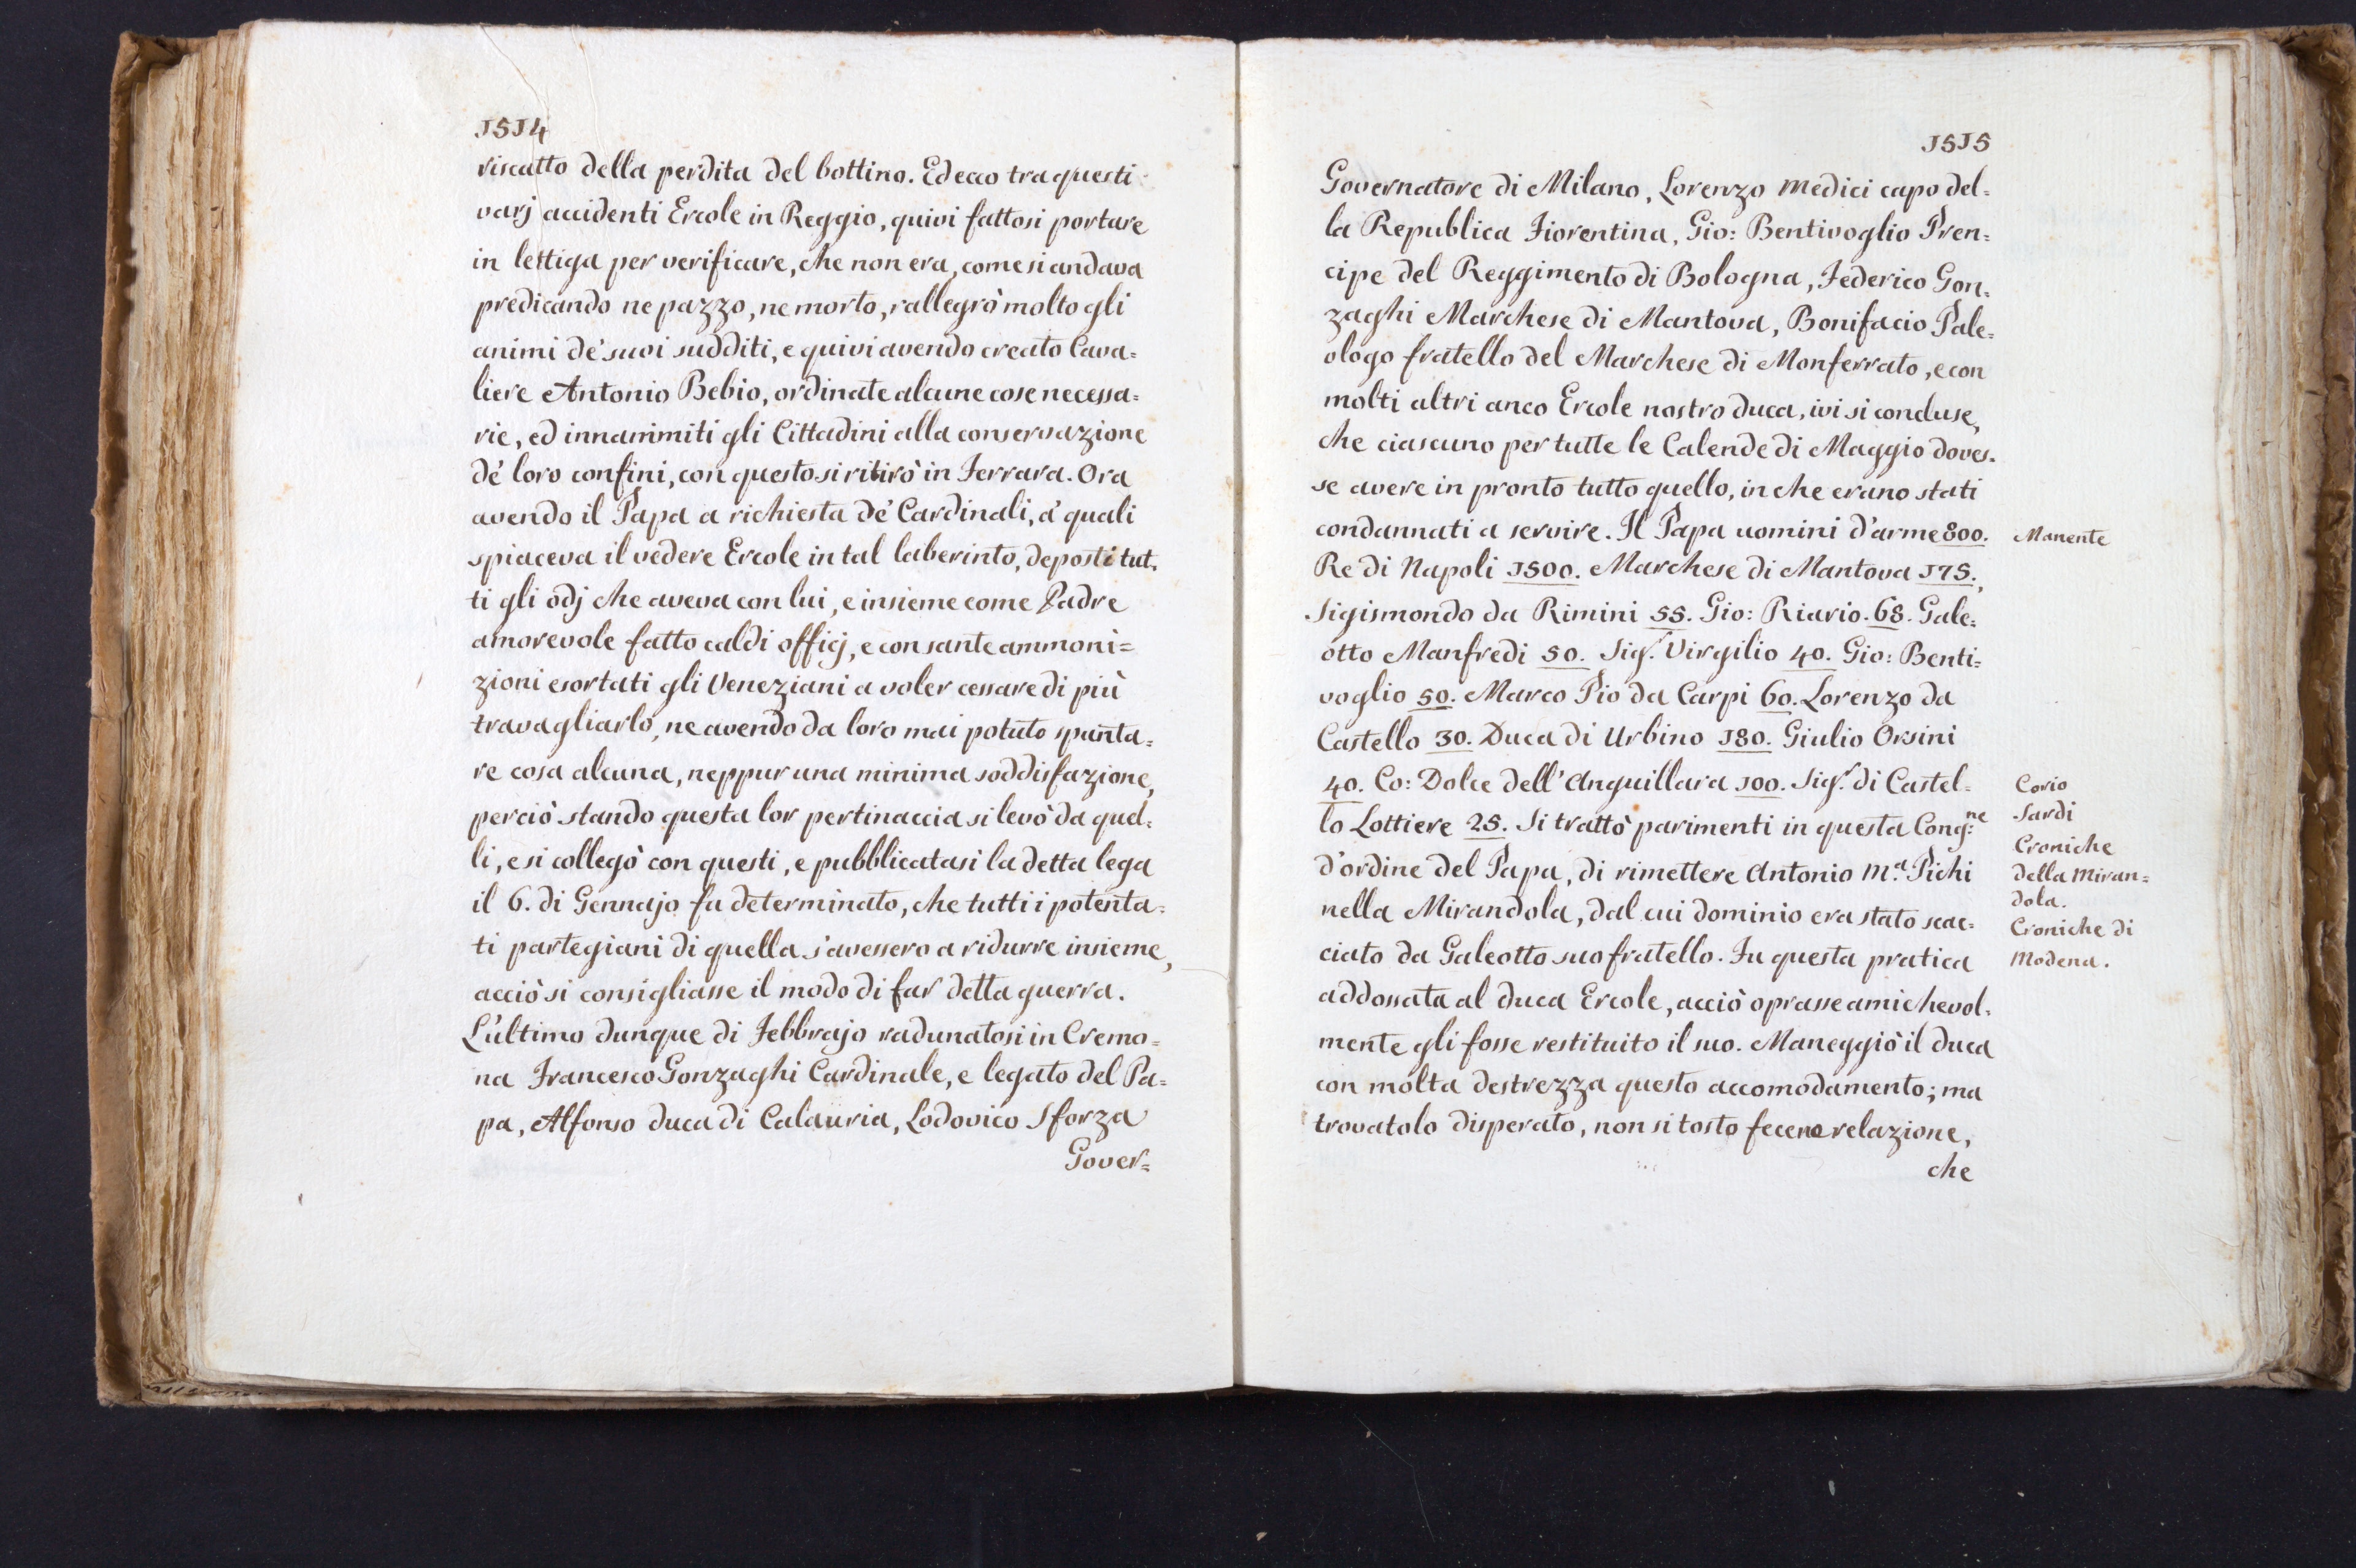 1514
riscatto della perdita del bottino. Ed ecco tra questi
varj accidenti Ercole in Reggio, quivi fattosi portare
in lettiga per verificare, che non era, come si andava
predicando ne pazzo, ne morto, rallegrò molto gli
animi de' suoi sudditi, e quivi avendo creato Cava=
liere Antonio Bebio, ordinate alcune cose necessa=
rie, ed innanimiti gli Cittadini alla conservazione
de' loro confini, con questo si ritirò in Ferrara. Ora
avendo il Papa a richiesta de' Cardinali, a' quali
spiaceva il vedere Ercole in tal laberinto, deposti tut=
ti gli odj che aveva con lui, e insieme come Padre
amorevole fatto caldi officj, e con sante ammoni=
zioni esortati gli Veneziani a voler cessare di più
travagliarlo, ne avendo da loro mai potuto spunta=
re cosa alcuna, neppur una minima soddisfazione,
perciò stando questa lor pertinaccia si levò da quel=
li, e si collegò con questi, e pubblicatasi la detta lega
il 6. di Gennajo fu determinato, che tutti i potenta=
ti partegiani di quella s'avessero a ridurre insieme,
acciò si consigliasse il modo di far detta guerra.
L'ultimo dunque di Febbrajo radunatosi in Cremo=
na Francesco Gonzaghi Cardinale, e legato del Pa=
pa, Alfonso duca di Calauria, Lodovico Sforza
Gover=
1515
Governatore di Milano, Lorenzo Medici capo del=
la Republica Fiorentina, Gio: Bentivoglio Pren=
cipe del Reggimento di Bologna, Federico Gon=
zaghi Marchese di Mantova, Bonifacio Pale=
ologo fratello del Marchese di Monferrato, e con
molti altri anco Ercole nostro duca, ivi si concluse,
che ciascuno per tutte le Calende di Maggio doves=
se avere in pronto tutto quello, in che erano stati
condannati a servire. Il Papa uomini d'arme 800.
Re di Napoli 1500. Marchese di Mantova 175.,
Sigismondo da Rimini 55. Gio: Riario. 68. Gale=
otto Manfredi 50. Sig.r Virgilio 40. Gio: Benti=
voglio 50. Marco Pio da Carpi 60. Lorenzo da
Castello 30. Duca di Urbino 180. Giulio Orsini
40. Co: Dolce dell'Anguillara 100. Sig.r di Castel=
lo Lottiere 25. Si trattò parimenti in questa Cong:ne
d'ordine del Papa, di rimettere Antonio M.a Pichi
nella Mirandola, dal cui dominio era stato scac=
ciato da Galeotto suo fratello. Fu questa pratica
addossata al duca Ercole, acciò oprasse amichevol=
mente gli fosse restituito il suo. Maneggiò il duca
con molta destrezza questo accomodamento; ma
trovatolo disperato, non si tosto fecene relazione,
che
Manente
Corio
Sardi
Croniche
della Miran=
dola.
Croniche di
Modena.